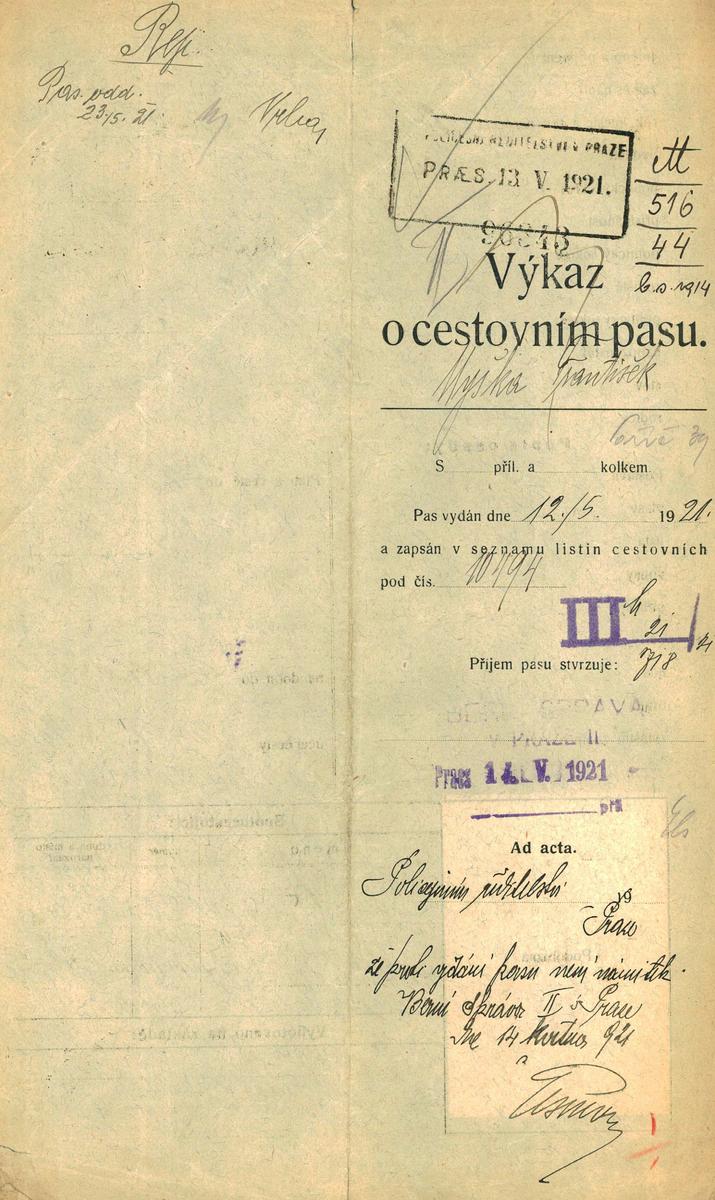 Rep.
Pas. odd.
23./5. 21.
POLICEJNÍ ŘEDITELSTVÍ V PRAZE
PRÆS. 13 V. 1921.
516
44
Výkaz
o cestovním pasu.
Myška František
S příl. a kolkem
Pas vydán dne 12./5. 1921.
a zapsán v seznamu listin cestovních
pod čís. 10494
III 21
718
Příjem pasu stvrzuje:
BERNÍ SPRÁVA
V PRAZE II
Praes 14. V. 1921
příl
Ad acta.
Policejnímu ředitelství
19
Praze
že proti vydání pasu není námitek.
Berní správa II v Praze
dne 14 května 921